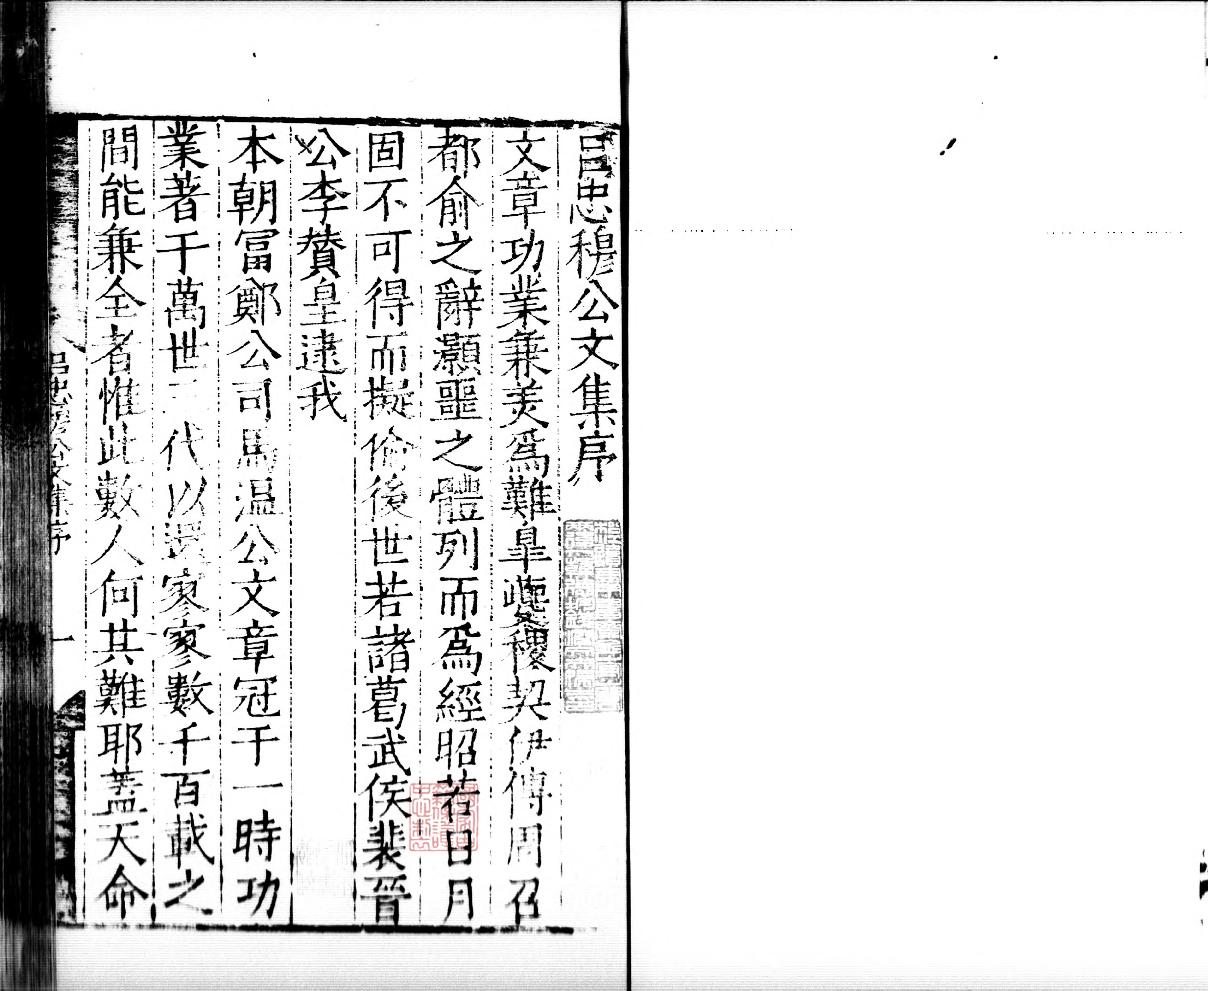 呂忠穆公文集序
文章功業兼美爲難臯夔稷契伊傅周召
都俞之辭灝噩之體列而爲經昭若日月
固不可得而擬倫後世若諸葛武侯裴晉
公李贊皇逮我
本朝富鄭公司馬温公文章冠于一時功
業著于萬世三代以還寥寥數千百載之
間能兼全者惟此數人何其難耶蓋天命
呂忠穆公文集序
一